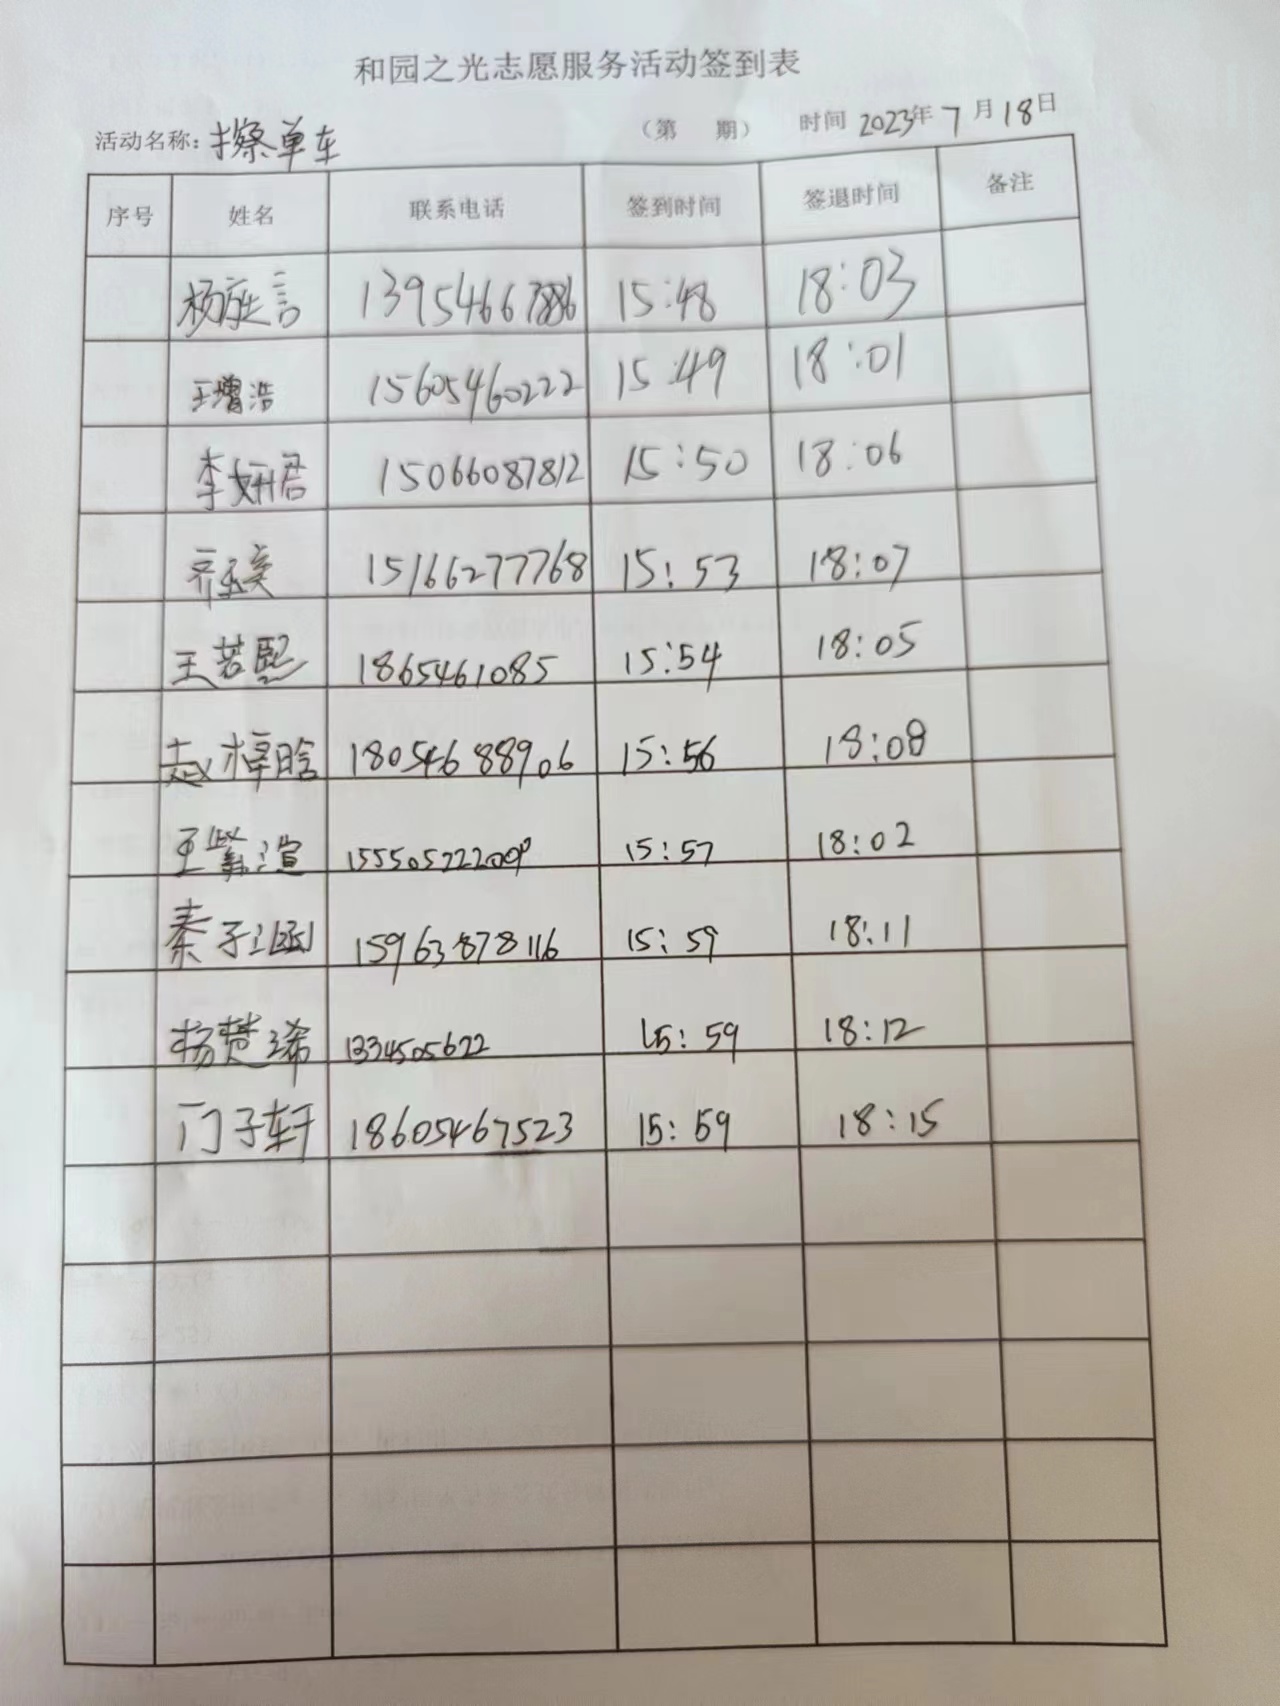 和园之光志愿服务活动签到表
活动名称：擦单车 （第 期） 时间 2023年7月18日
序号 姓名 联系电话 签到时间 签退时间 备注
杨庭言 13954667886 15:48 18:03
王增浩 15605460222 15:49 18:01
李妍君 15066087812 15:50 18:06
齐 15166277768 15:53 18:07
王若熙 1865461085 15:54 18:05
赵梓晗 18054688906 15:56 18:08
王紫渲 15:57 18:02
秦子涵 15963878116 15:59 18:11
杨楚浠 1334505622 15:59 18:12
闫子轩 18605467523 15:59 18:15